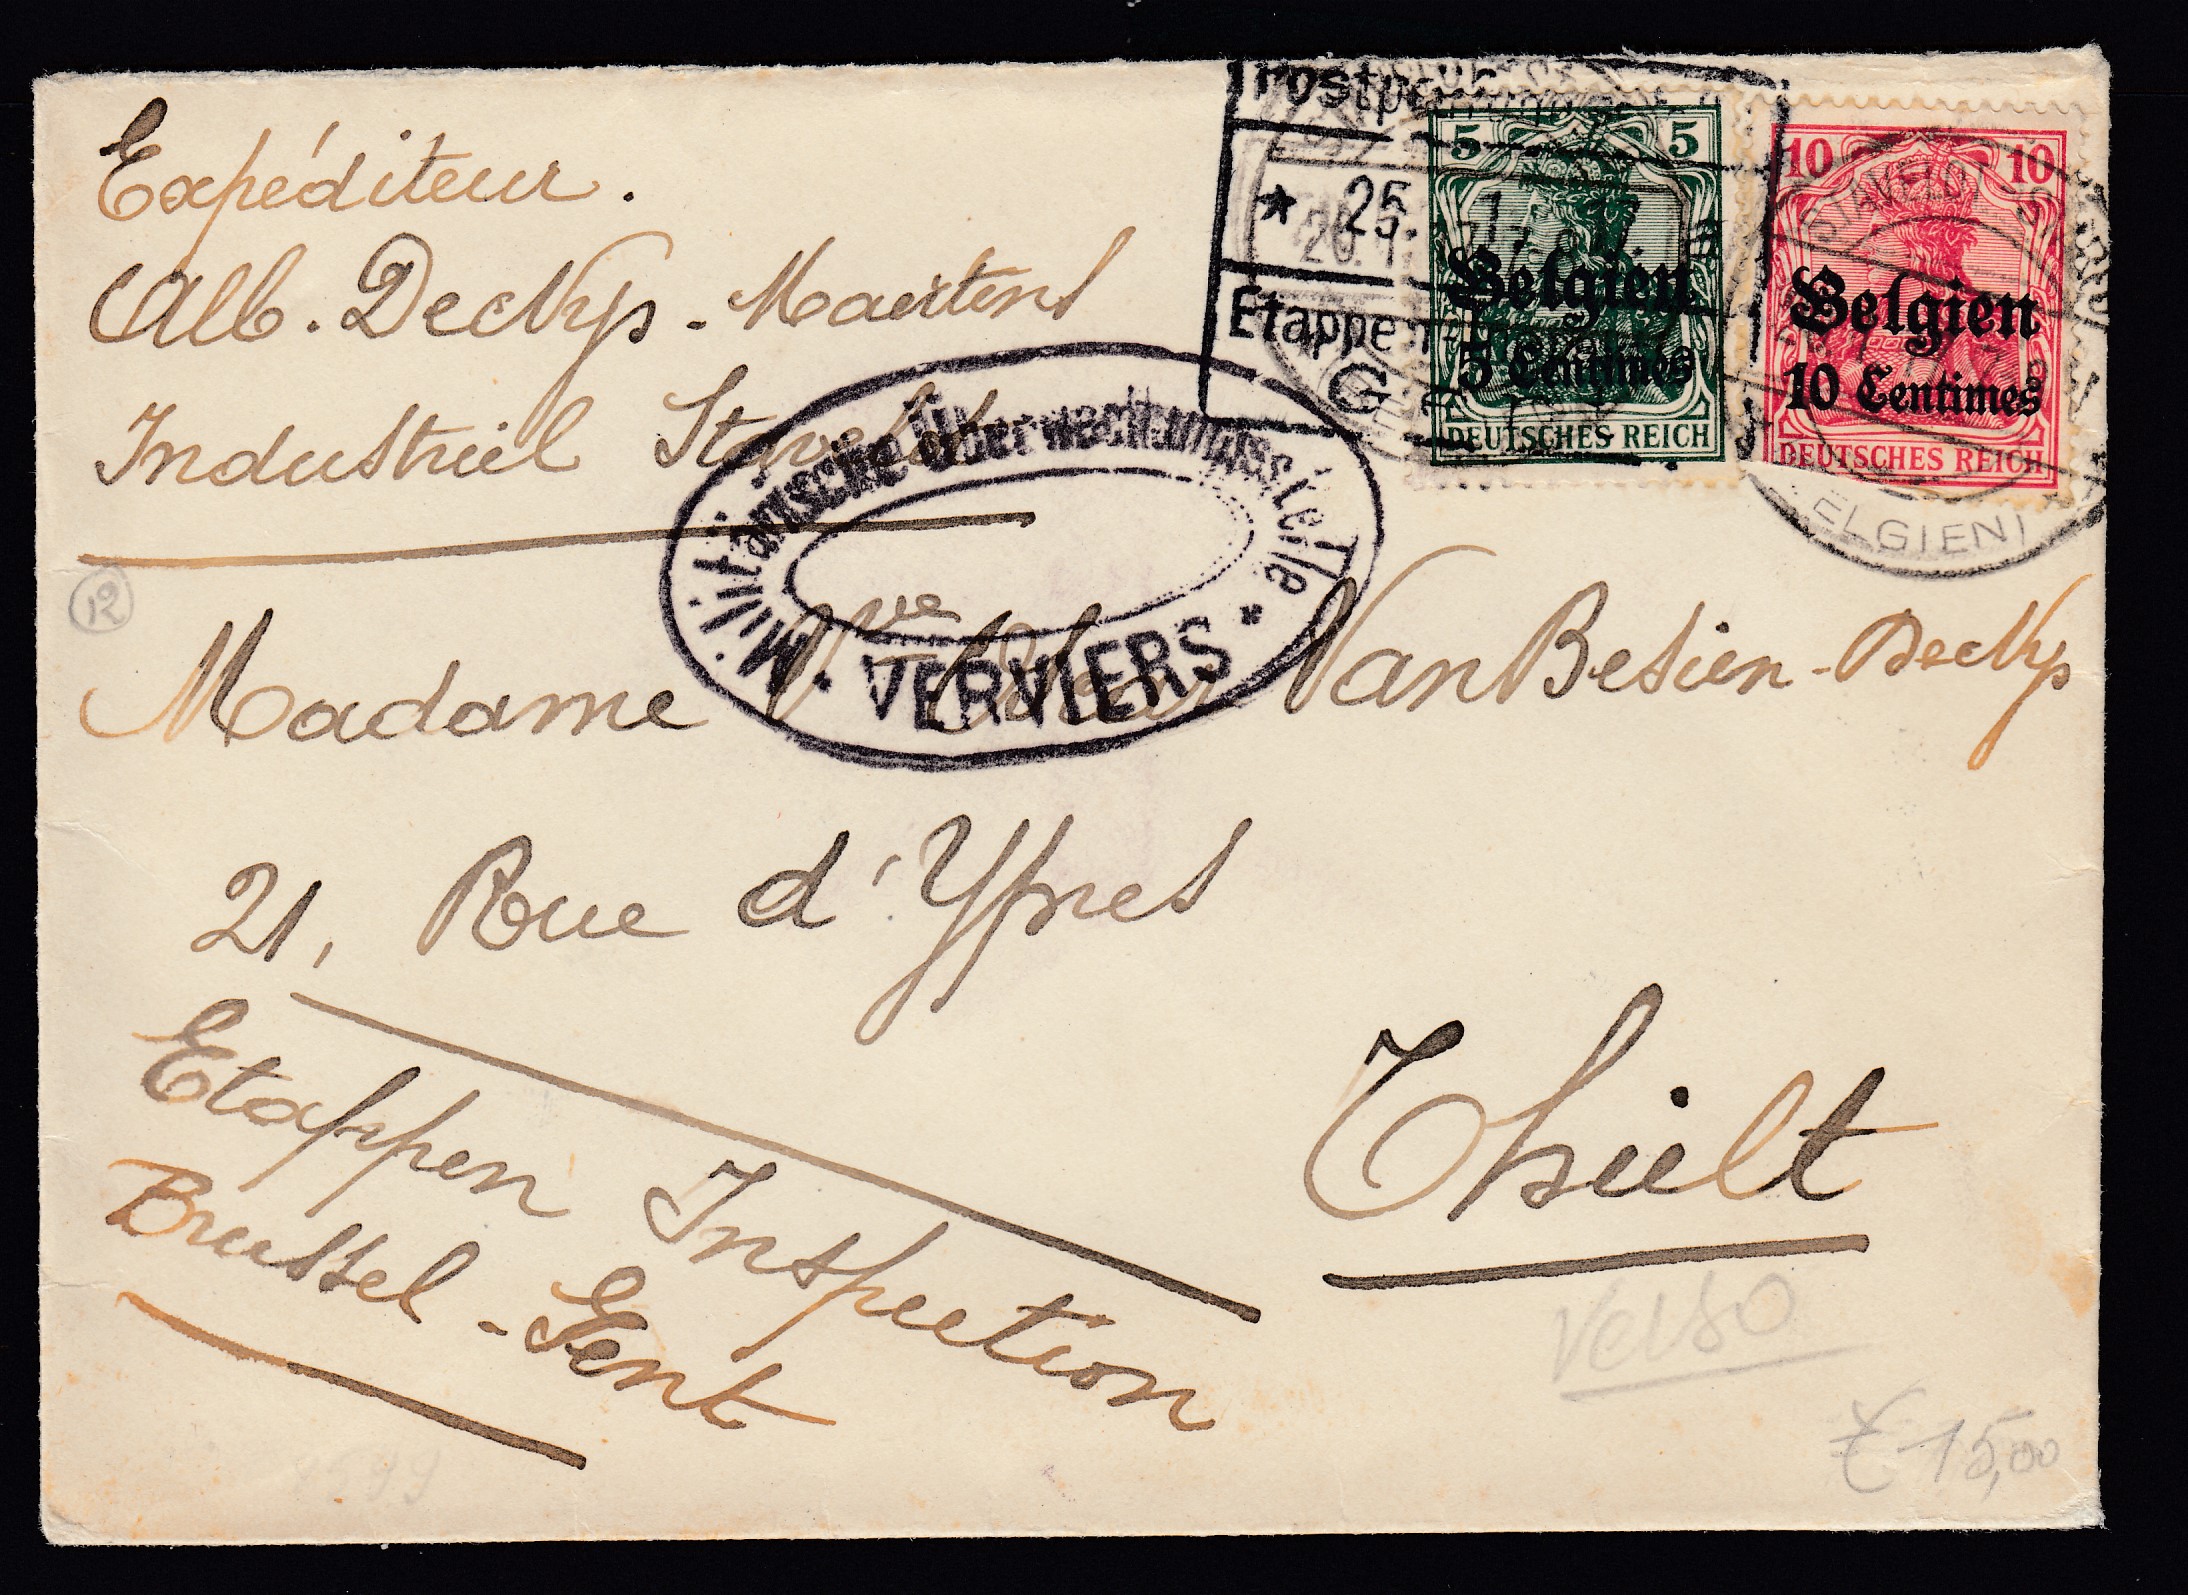 Expéditeur.
Alb. DecNyp-Maertens
Industriel Stavelot
Etappen
G
25.
5 5
Belgien
5 Centimes
DEUTSCHES REICH
10 10
Belgien
10 Centimes
DEUTSCHES REICH
STAVELOT
BELGIEN
Militärische Überwachungsstelle
* VERVIERS *
12
Madame Vve Oscar VanBesien-DecNyp
21, Rue d'Ypres
Thielt
Etappen Inspection
Brussel-Gent
Verso
€ 15,00